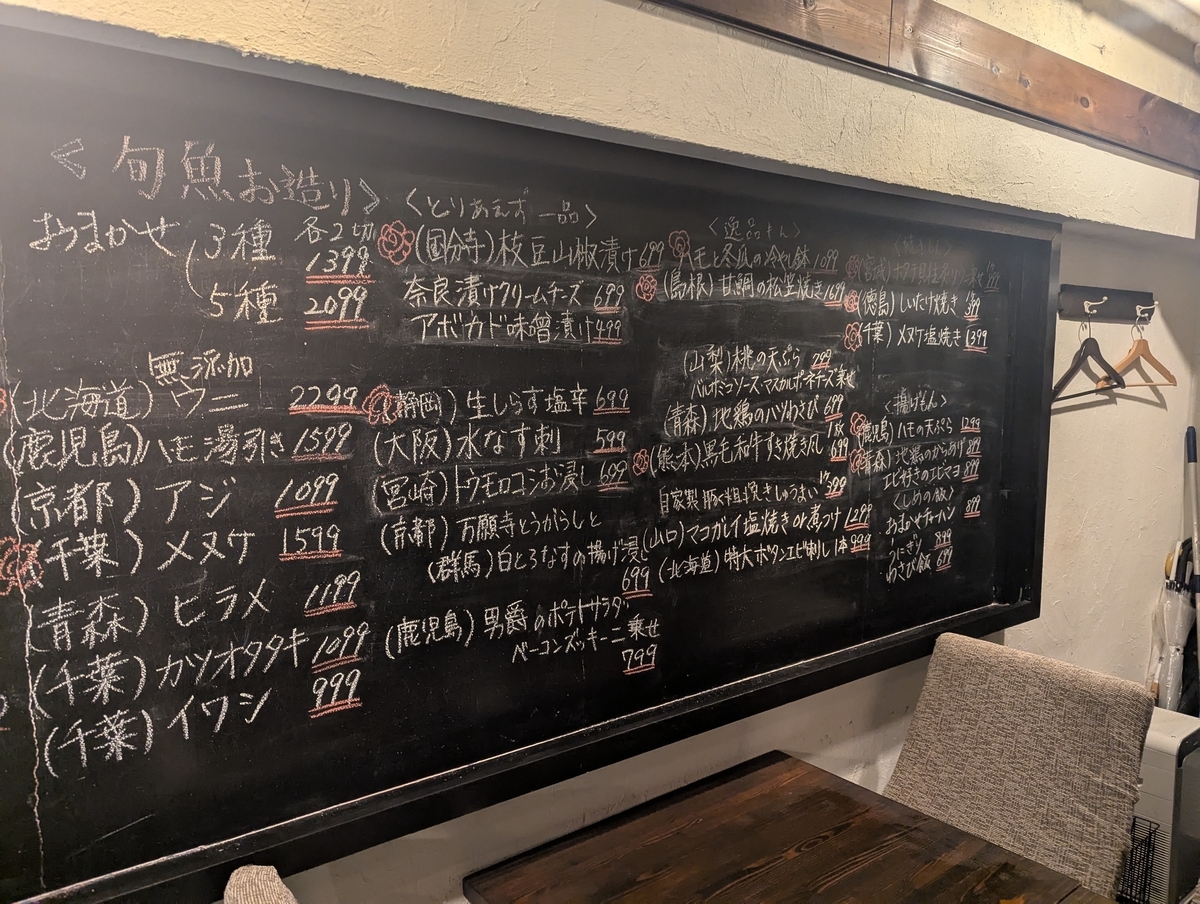 <旬魚お造り>
おまかせ 3種 各2切 1399
5種 2099
無添加
(北海道) ウニ 2299
(鹿児島) ハモ湯引き 1599
(京都) アジ 1099
(千葉) メヌケ 1599
(青森) ヒラメ 1199
(千葉) カツオタタキ 1099
(千葉) イワシ 999
<とりあえず一品>
(国分寺) 枝豆山椒漬け 699
奈良漬けクリームチーズ 699
アボカド味噌漬け 499
(静岡) 生しらす塩辛 699
(大阪) 水なす刺 599
(宮崎) トウモロコシお浸し 699
(京都) 万願寺とうがらしと
(群馬) 白とろなすの揚げ浸し
699
(鹿児島) 男爵のポテトサラダ
ベーコンズッキーニ乗せ
799
<逸品もん>
ハモと冬瓜の冷やし鉢 1099
(島根) 甘鯛の松笠焼き 1699
(山梨) 桃の天ぷら 799
バルサミコソース・マスカルポーネチーズ乗せ
(青森) 地鶏のハツわさび 699
(熊本) 黒毛和牛すき焼き風 1枚 899
自家製豚粗挽きしゅうまい 399
(山口) マコガレイ塩焼きor煮つけ 1299
(北海道) 特大ボタンエビ刺し 1本 999
(宮城)
(徳島) しいたけ焼き 399
(千葉) メヌケ塩焼き 1399
<揚げもん>
(鹿児島) ハモの天ぷら 1299
(青森) 地鶏のからあげ 899
エビ好きのエビマヨ 899
<しめの飯>
おまかせチャーハン 899
うにぎり 899
わさび飯 699